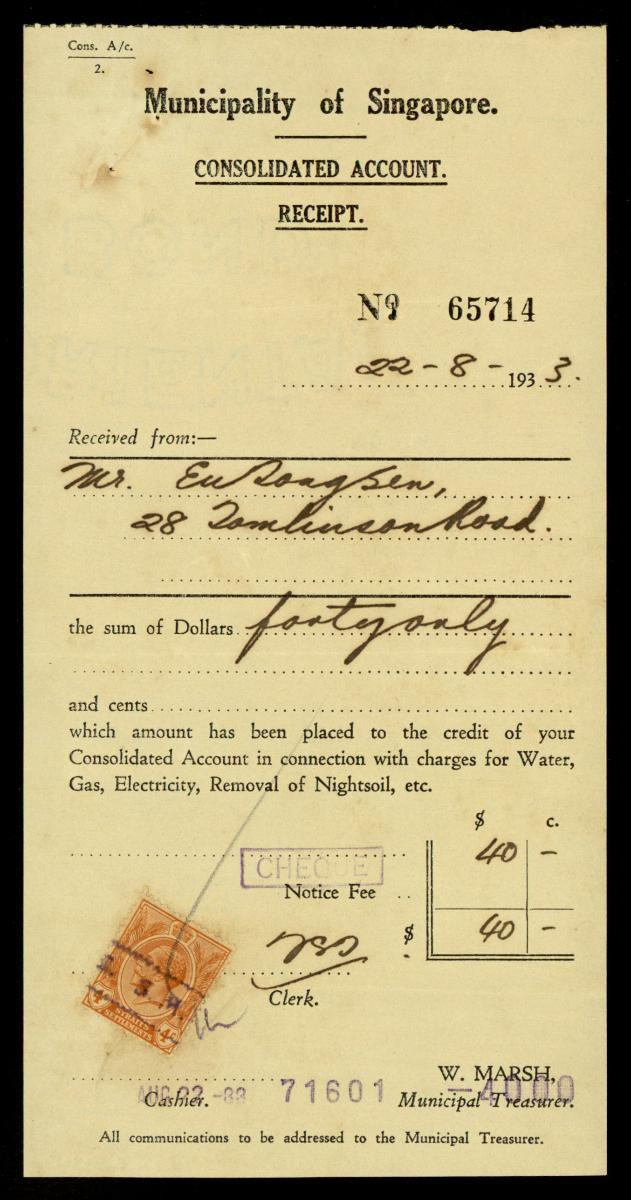 Cons. A/c.
2.
Municipality of Singapore.
CONSOLIDATED ACCOUNT.
RECEIPT.
No 65714
22-8-1933.
Received from:—
Mr. Eu Tong Sen,
28 Tomlinson Road.
the sum of Dollars forty only
and cents
which amount has been placed to the credit of your
Consolidated Account in connection with charges for Water,
Gas, Electricity, Removal of Nightsoil, etc.
$ c.
40 -
CHEQUE
Notice Fee
$ 40 -
Clerk.
4c STRAITS SETTLEMENTS 4c
W. MARSH,
AUG 22 -33 71601 -4000
Cashier. Municipal Treasurer.
All communications to be addressed to the Municipal Treasurer.